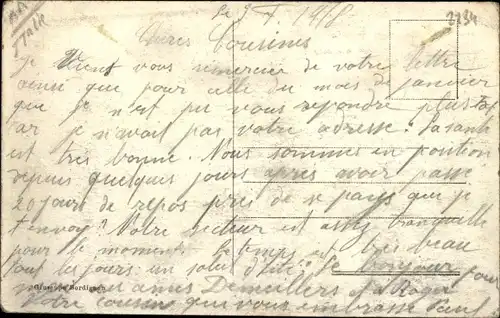 le 9 1918
Chères Cousines
Je Vient vous remercier de votre lettre
ainsi que pour celle du mois de janvier
que je n'est pu vous repondre plus tot
car je n'avait pas votre adresse. La santé
est très bonne. Nous sommes en position
depuis quelques jours après avoir passé
20 jours de repos près de ce pays que je
t'envoy? Notre secteur est assez tranquille
pour le moment. Le temps est très beau
tout les jours un soleil d'été. Le bonjour pour
Demeillers Roger
Votre cousin qui vous embrasse Paul
Giuseppe Bordignon
2134
Italie